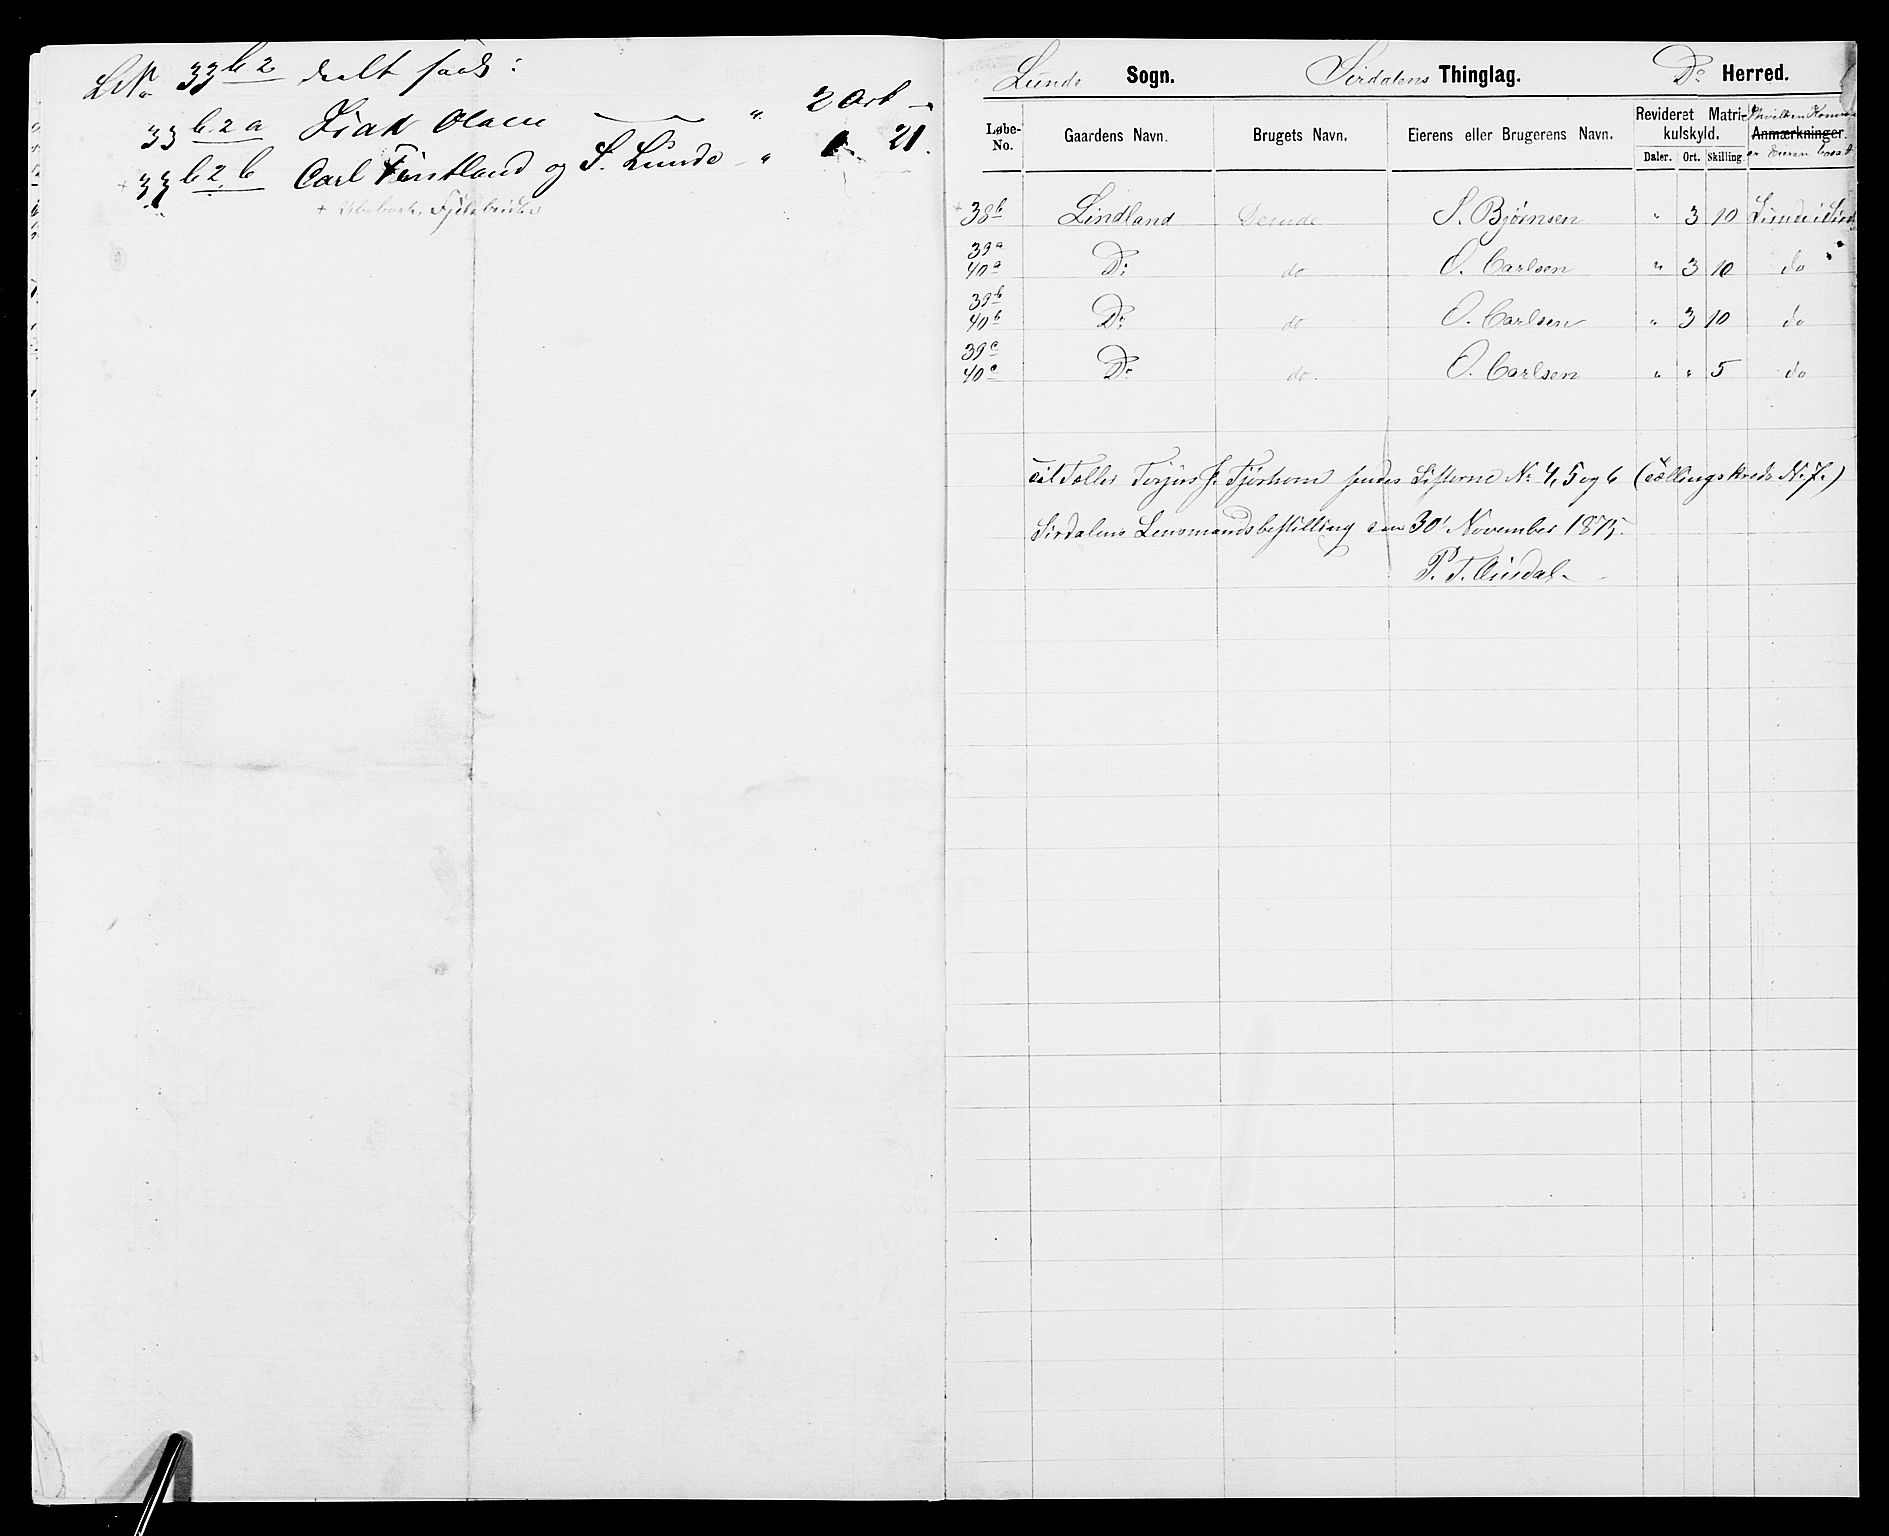 LNo. 33 b 2 deelt saad:
33 b 2 a Isak Olsen — " 2 Ort -
+ 33 b 2 b Carl Fintland og S. Lunde - " 1 21.
Lunde Sogn. Sirdalens Thinglag. Do Herred.
Løbe-No. Gaardens Navn. Brugets Navn. Eierens eller Brugerens Navn. Revideret Matrikulskyld. Anmærkninger.
Daler. Ort. Skilling
38b Lindland S. Bjørnsen " 3 10 Lunde i Sird
39a 40a Do do O. Carlsen " 3 10 do
39b 40b Do do O. Carlsen " 3 10 do
39c 40c Do do. O. Carlsen " " 5 do
Til Tæller Torjus J. Tjørhom sendes Listerne No 4, 5 og 6 (Tællingskreds No 7.)
Sirdalens Lensmandsbestilling den 30' November 1875.
P. T.